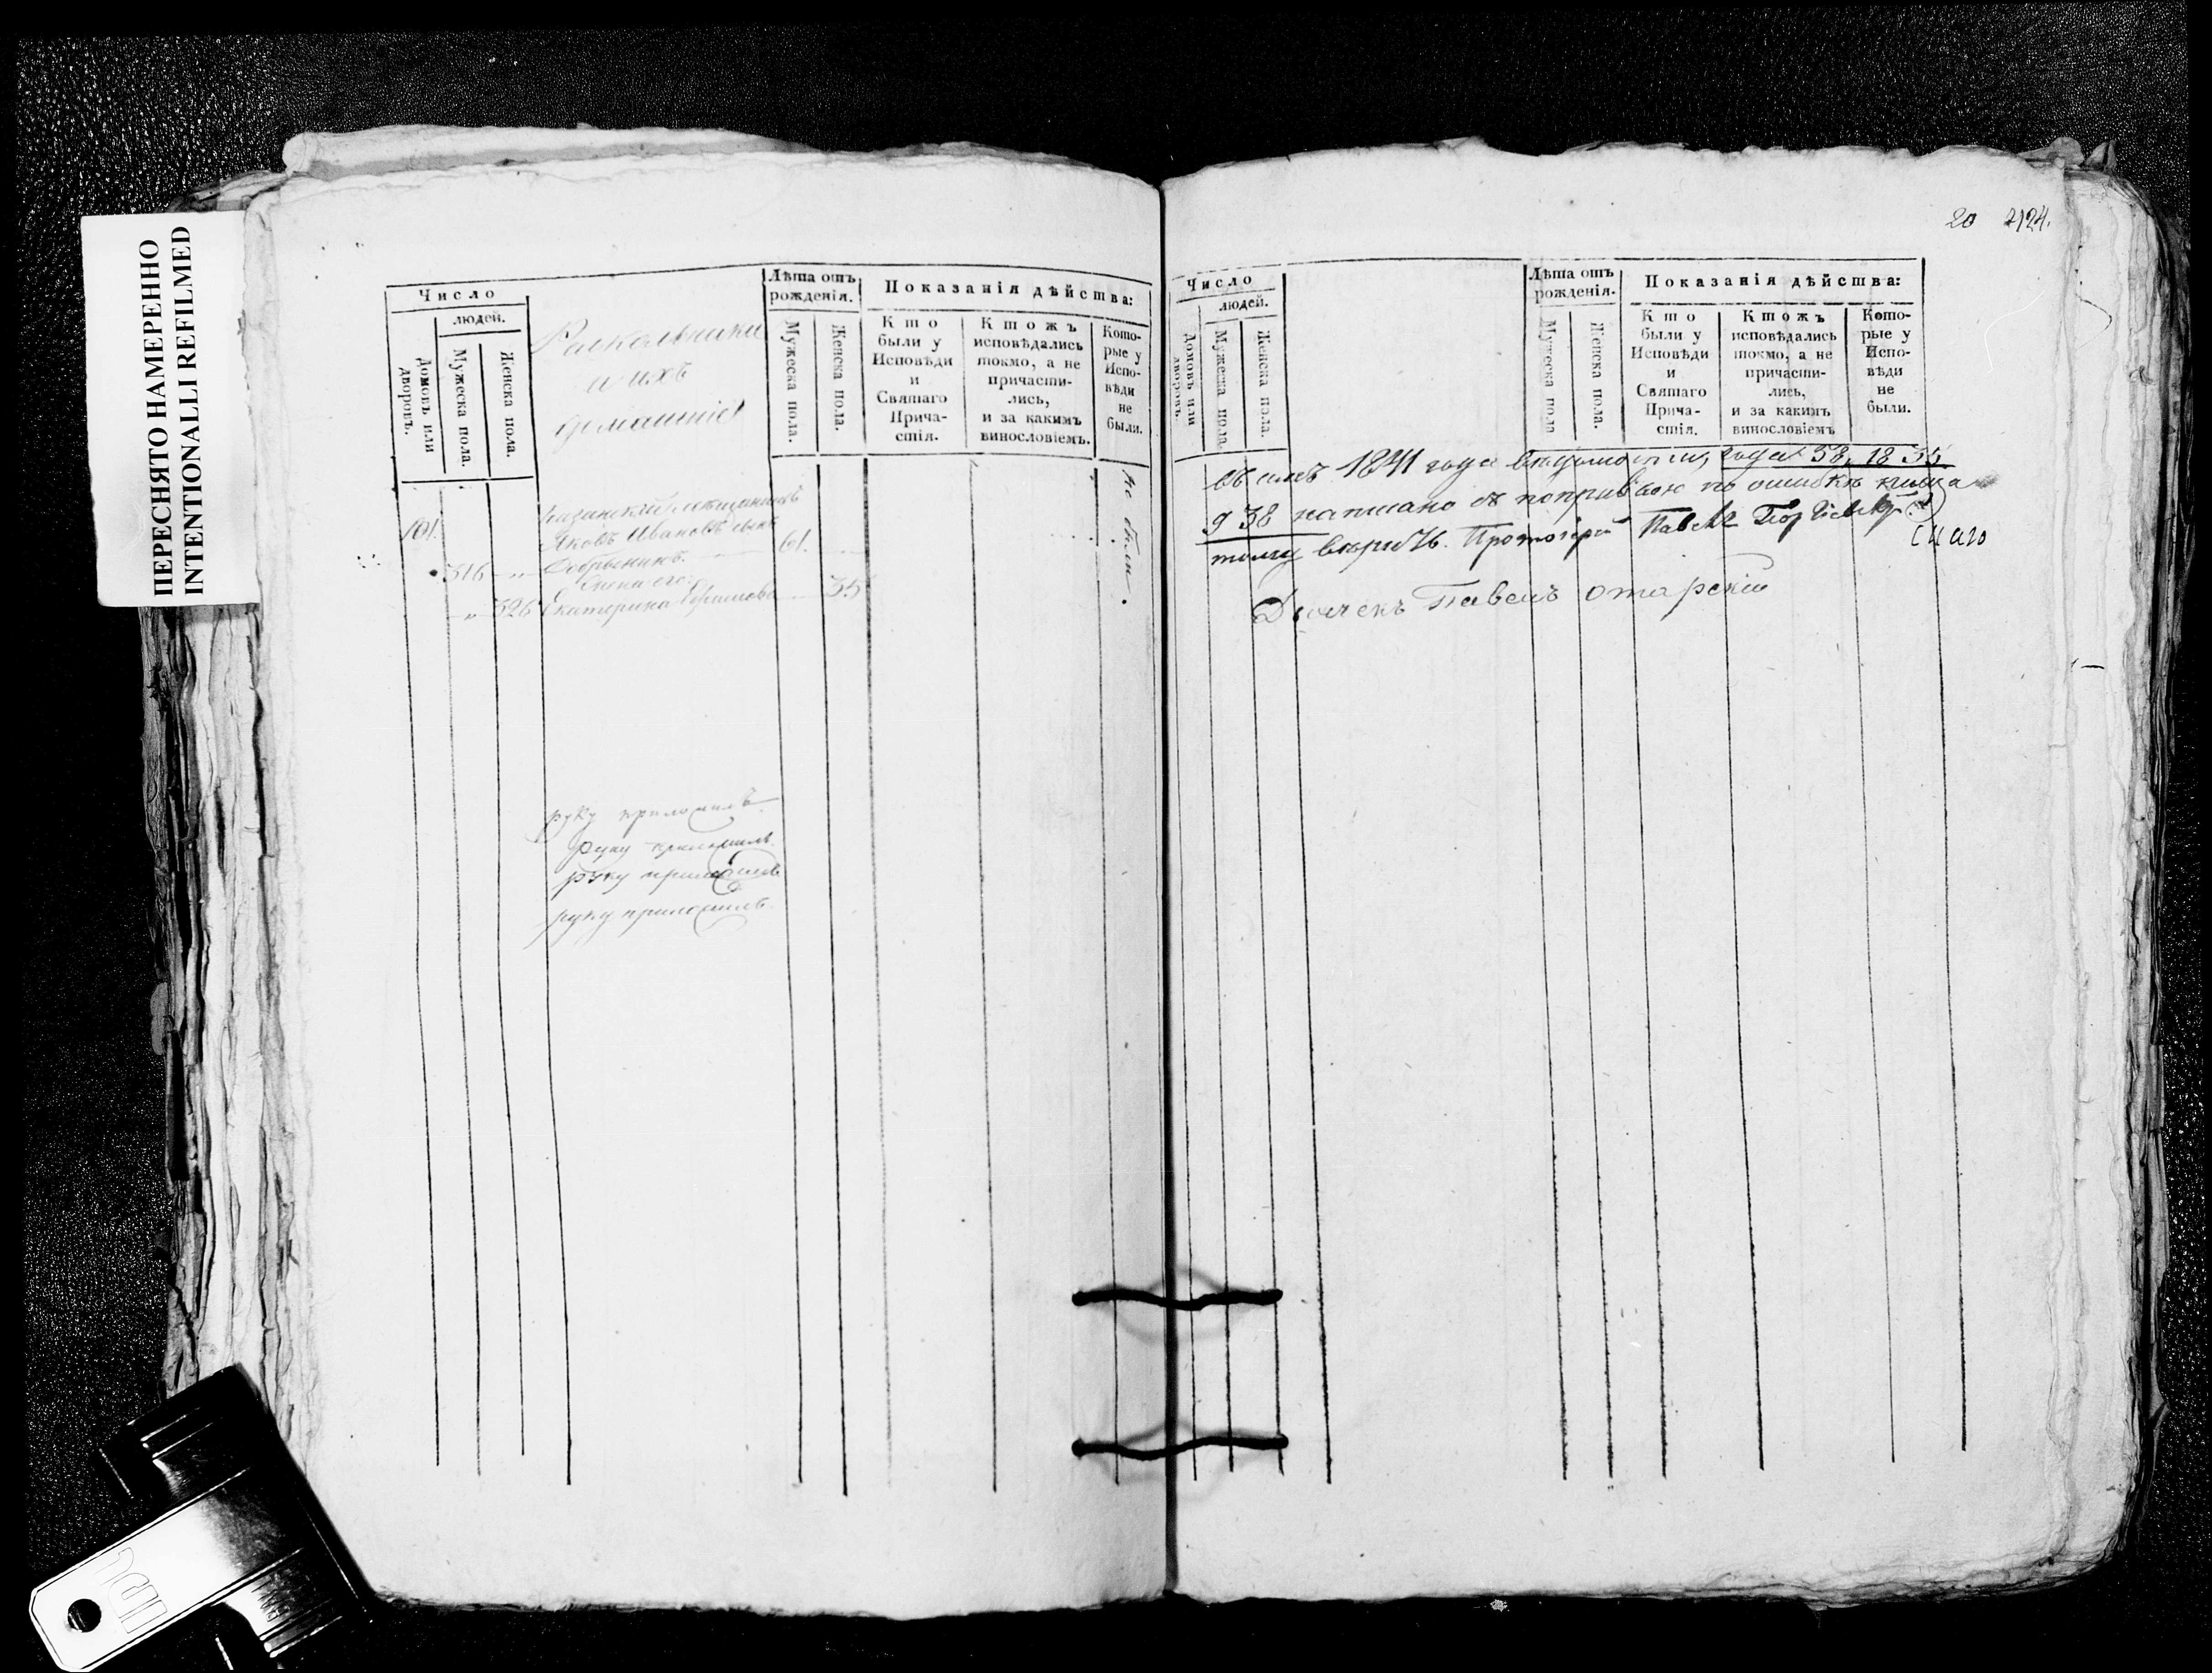 ПЕРЕСНЯТО НАМЕРЕННО
INTENTIONALLI REFILMED
Число
людей.
Домовъ или дворовъ.
Мужеска пола.
Женска пола.
Раскольники
и ихъ
домашніе
Лѣта отъ рожденія.
Мужеска пола.
Женска пола.
Показанія дѣйства:
Кто были у Исповѣди и Святаго Причастія.
Ктожъ исповѣдались токмо, а не причастились, и за какимъ винословіемъ.
Которые у Исповѣди не были.
Казанскій
101. Яковъ Ивановъ сынъ
316 „ 61.
Жена его:
„ 326 Екатерина 35
не были.
руку приложилъ.
руку приложилъ.
руку приложилъ
руку приложилъ.
20 2124.
Число
людей.
Домовъ или дворовъ.
Мужеска пола.
Женска пола.
Лѣта отъ рожденія.
Мужеска пола
Женска пола.
Показанія дѣйства:
Кто были у Исповѣди и Святаго Причастія.
Ктожъ исповѣдались токмо, а не причастились, и за какимъ винословіемъ
Которые у Исповѣди не были.
въ сихъ 1841 года года 58, 18 35
9 38 написано по ошибкѣ
тому Протоіерей Павелъ
Дьячекъ Павелъ Отарскій